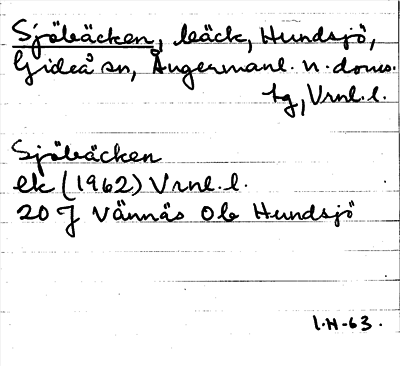 Sjöbäcken, bäck, Hundsjö,
Gideå sn, Ångermanl. n. doms.
tg, Vrnl. l.
Sjöbäcken
ek (1962) Vrnl. l.
20 J Vännäs Ob Hundsjö
1.H-63.